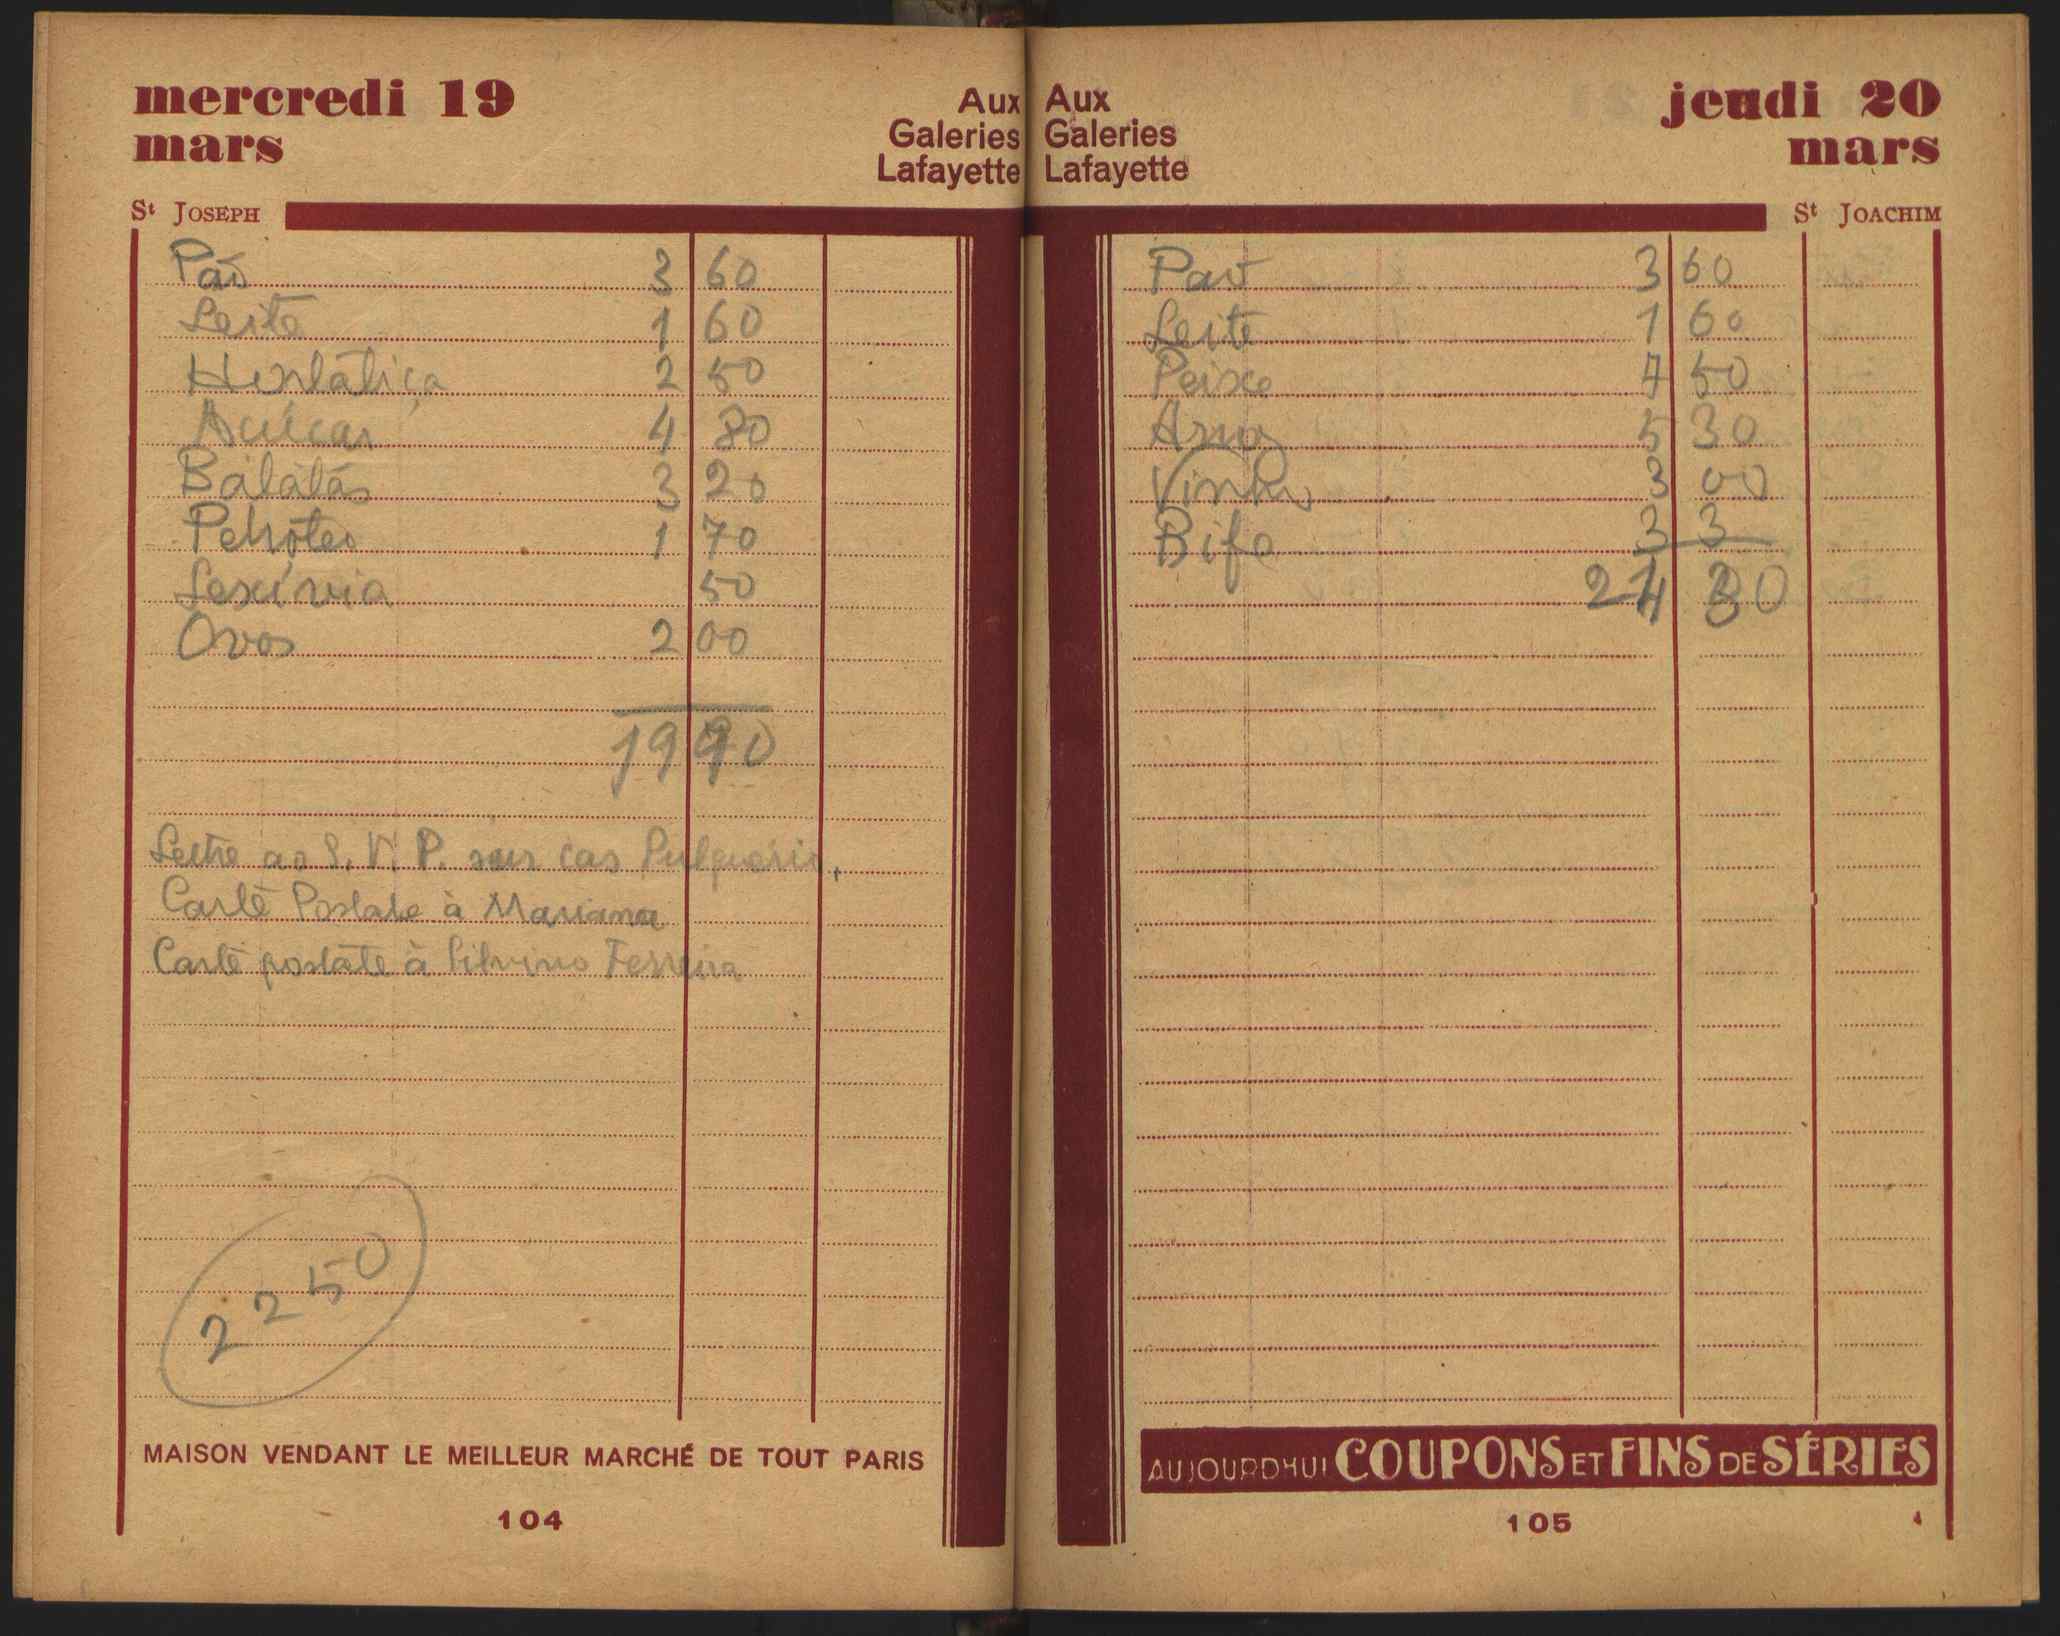 mercredi 19
mars
Aux
Galeries
Lafayette
St JOSEPH
Pão 3 60
Leite 1 60
Hortaliça 2 50
Açúcar 4 80
Batatas 3 20
Petróleo 1 70
Lexívia 50
Ovos 2 00
19 90
Lettre ao S. V. P. sur cas Pulquério,
Carte Postale à Mariana
Carte postale à Silvino Ferreira
2250
MAISON VENDANT LE MEILLEUR MARCHÉ DE TOUT PARIS
104
Aux
Galeries
Lafayette
jeudi 20
mars
St JOACHIM
Pão 3 60
Leite 1 60
Peixe 7 50
Arroz 5 30
Vinho 3 00
Bife 3 3
24 30
AUJOURDHUI COUPONS ET FINS DE SÉRIES
105